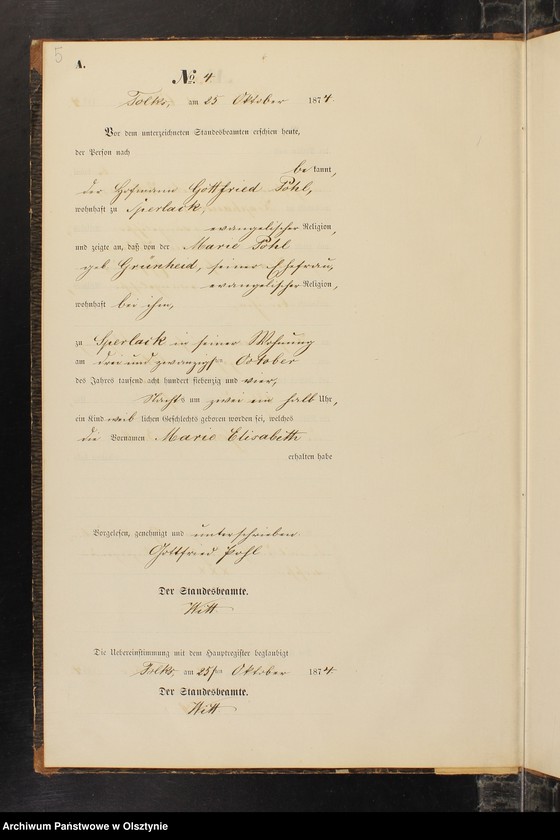 5
A.
No. 4
Tolks, am 25 Oktober 1874.
Vor dem unterzeichneten Standesbeamten erschien heute,
der Person nach
bekannt,
der Hofmann Gottfried Pohl,
wohnhaft zu Sperlack,
evangelischer Religion,
und zeigte an, daß von der Marie Pohl
geb. Grünheid, seiner Ehefrau,
evangelischer Religion,
wohnhaft bei ihm,
zu Sperlack in seiner Wohnung
am drei und zwanzigst October
des Jahres tausend acht hundert siebenzig und vier,
Nachts um zwei ein halb Uhr,
ein Kind weiblichen Geschlechts geboren worden sei, welches
die Vornamen Marie Elisabeth
erhalten habe
Vorgelesen, genehmigt und unterschrieben
Gottfried Pohl
Der Standesbeamte.
Witt
Die Uebereinstimmung mit dem Hauptregister beglaubigt
Tolks, am 25t Oktober 1874.
Der Standesbeamte.
Witt
Archiwum Państwowe w Olsztynie